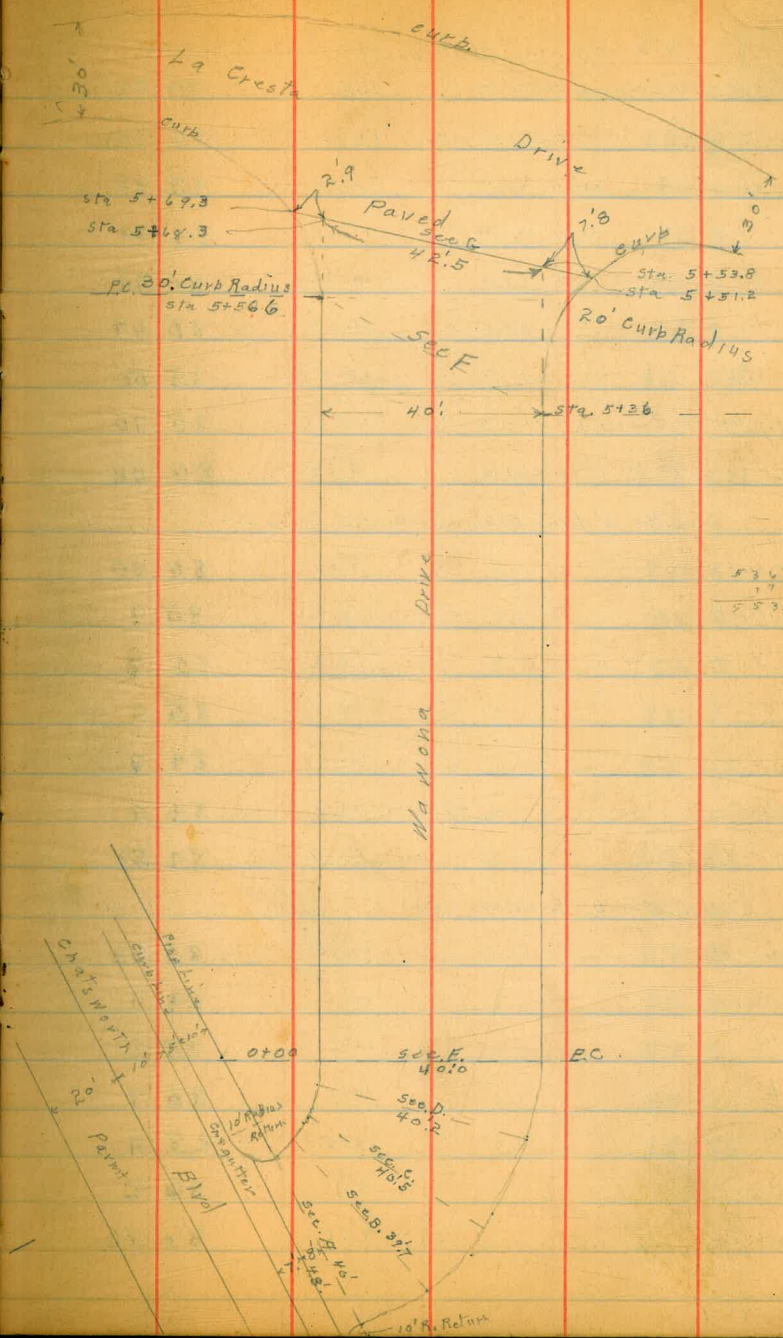 curb
30'
La Cresta
curb
Drive
2'.9
sta 5+69.3
sta 5+68.3
Paved
sec G
42'.5
7'.8
30'
curb
sta. 5+53.8
sta 5+51.2
P.C. 30'. Curb Radius
sta 5+56.6
20' Curb Radius
sec F
40'.
sta. 5+36
Wa Wona Drive
536
553
Prop Line
Curb Line
Chatsworth
Blvd
20'
Parmt.
0+00
sec. E.
40.0
P.C.
10' Radius
Return
sec. D.
40.2
sec. C.
40'.5
sec. B. 39'.7
sec. A 40'
10' R. Return